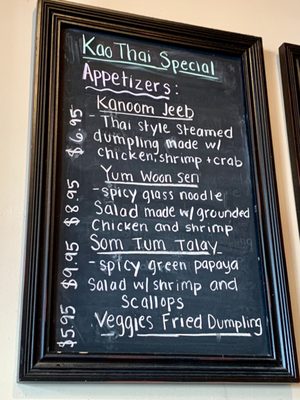 KaoThai Special
Appetizers:
Kanoom Jeeb
$6.95
- Thai style steamed
dumpling made w/
chicken, shrimp + crab
Yum Woon Sen
$8.95
- spicy glass noodle
Salad made w/ grounded
Chicken and shrimp
Som Tum Talay
$9.95
- spicy green papaya
Salad w/ shrimp and
Scallops
$5.95
Veggies Fried Dumpling